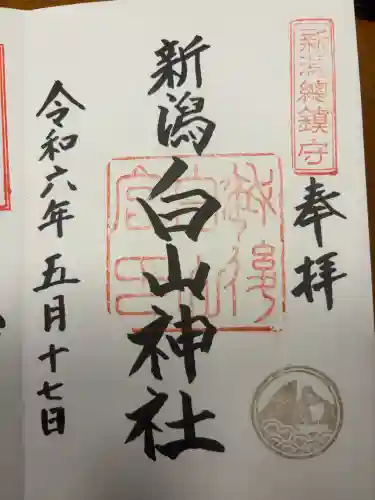 新潟總鎮守
奉拝
新潟白山神社
越後
白山
宮印
令和六年五月十七日